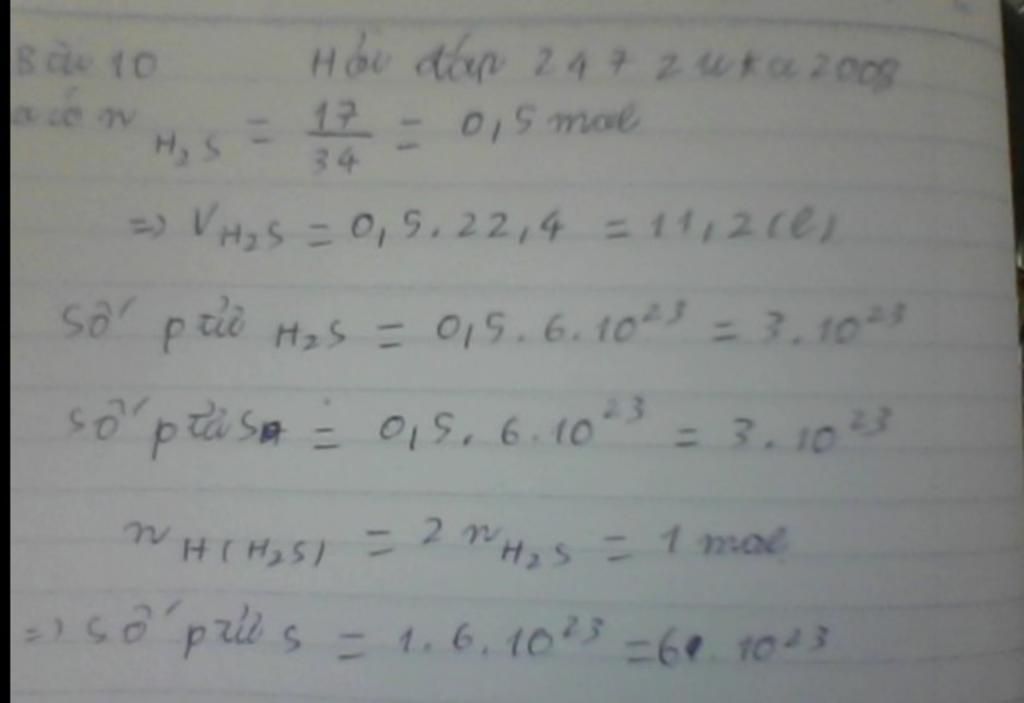 Bài 10 Hỏi đáp 247 zuka2008
a có n H₂S = 17/34 = 0,5 mol
=> V H₂S = 0,5.22,4 = 11,2 (l)
Số ptử H₂S = 0,5.6.10²³ = 3.10²³
Số ptử S = 0,5.6.10²³ = 3.10²³
n H(H₂S) = 2 n H₂S = 1 mol
=> số ptử S = 1.6.10²³ = 6.10²³